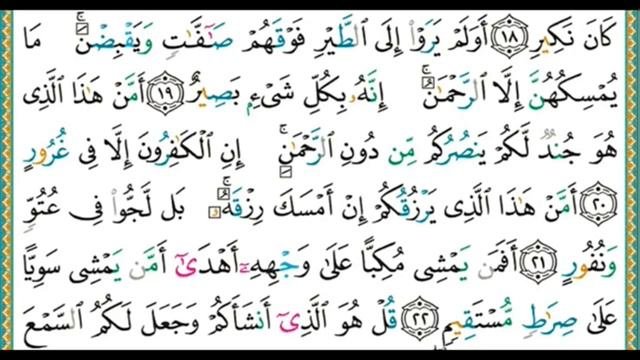 كَانَ نَكِيرِ ۝١٨ أَوَلَمْ يَرَوْا۟ إِلَى ٱلطَّيْرِ فَوْقَهُمْ صَـٰٓفَّـٰتٍ وَيَقْبِضْنَ ۚ مَا
يُمْسِكُهُنَّ إِلَّا ٱلرَّحْمَـٰنُ ۚ إِنَّهُۥ بِكُلِّ شَىْءٍۭ بَصِيرٌ ۝١٩ أَمَّنْ هَـٰذَا ٱلَّذِى
هُوَ جُندٌ لَّكُمْ يَنصُرُكُم مِّن دُونِ ٱلرَّحْمَـٰنِ ۚ إِنِ ٱلْكَـٰفِرُونَ إِلَّا فِى غُرُورٍ
۝٢٠ أَمَّنْ هَـٰذَا ٱلَّذِى يَرْزُقُكُمْ إِنْ أَمْسَكَ رِزْقَهُۥ ۚ بَل لَّجُّوا۟ فِى عُتُوٍّ
وَنُفُورٍ ۝٢١ أَفَمَن يَمْشِى مُكِبًّا عَلَىٰ وَجْهِهِۦٓ أَهْدَىٰٓ أَمَّن يَمْشِى سَوِيًّا
عَلَىٰ صِرَٰطٍ مُّسْتَقِيمٍ ۝٢٢ قُلْ هُوَ ٱلَّذِىٓ أَنشَأَكُمْ وَجَعَلَ لَكُمُ ٱلسَّمْعَ